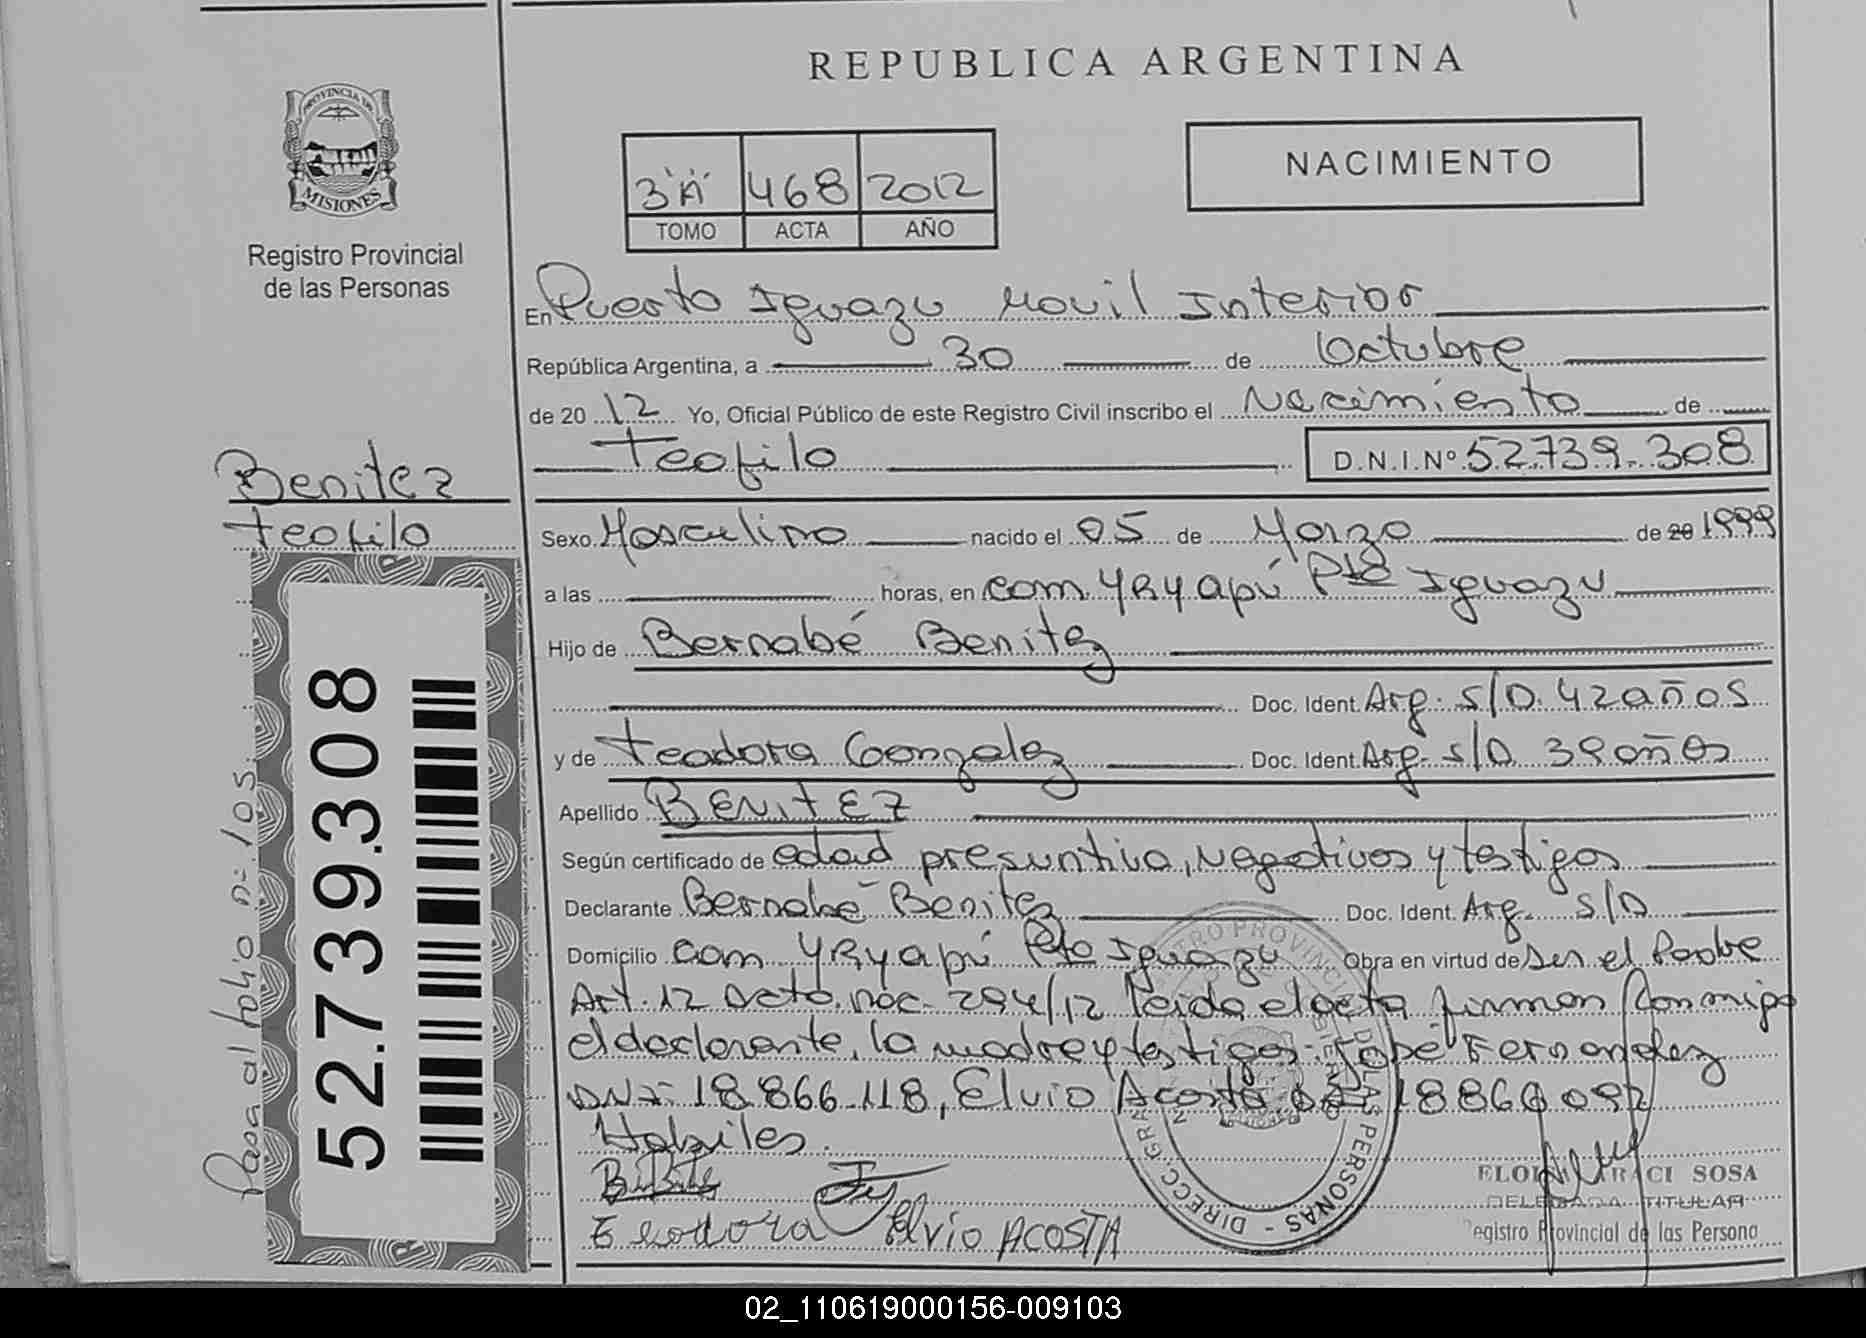 REPUBLICA ARGENTINA
PROVINCIA DE
MISIONES
Registro Provincial
de las Personas
NACIMIENTO
3"A" 468 2012
TOMO ACTA AÑO
En Puerto Iguazu Movil Interior
República Argentina, a 30 de Octubre
de 20 12 Yo, Oficial Público de este Registro Civil inscribo el Nacimiento de
Teofilo D.N.I.Nº 52.739.308
Benitez
Teofilo
Sexo Masculino nacido el 05 de Marzo de 20 1999
a las horas, en com. YRyapú Pto Iguazu
Hijo de Bernabé Benitez
Doc. Ident. Arg. S/D. 42 años
y de Teodora Gonzalez Doc. Ident. Arg. S/D 39 años
Apellido BENITEZ
Según certificado de edad presuntiva, Negativos y testigos
Declarante Bernabé Benitez Doc. Ident. Arg. S/D
Domicilio com YRyapú Pto Iguazu Obra en virtud de Ser el Padre
Art. 12 Dcto. nac. 294/12 Leida el acta firman Conmigo
el declarante, la madre y testigos: José Fernandez
DNI: 18.866.118, Elvio Acosta
Habiles.
Elvio ACOSTA
SOSA
DELEGADA TITULAR
Registro Provincial de las Persona
52.739.308
Pasa al folio nº 105
02_110619000156-009103